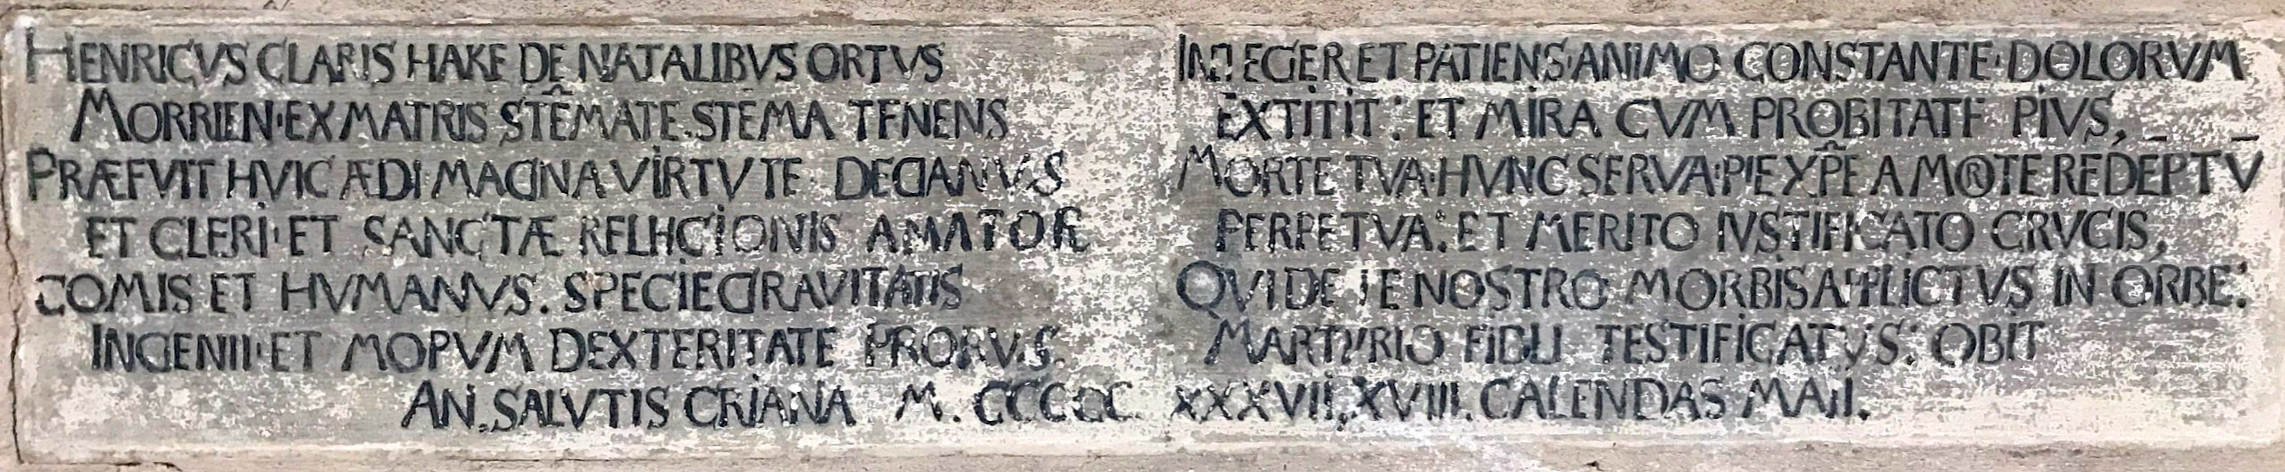 HENRICVS CLARIS HAKE DE NATALIBVS ORTVS
MORRIEN·EX MATRIS STE̅MATE·STEMA TENENS
PRÆFVIT HVIC ÆDI MAGNA VIRTVTE DECANVS
ET CLERI·ET SANCTÆ RELIGIONIS AMATOR
COMIS ET HVMANVS. SPECIE GRAVITATIS
INGENII·ET MORVM DEXTERITATE PROBVS.
AN. SALVTIS CRIANA M. CCCCC
INTEGER ET PATIENS·ANIMO CONSTANTE·DOLORVM
EXTITIT: ET MIRA CVM PROBITATE PIVS,
MORTE TVA·HVNC SERVA·PIE XP̅E A MORTE REDE̅PTV̅
PERPETVA: ET MERITO IVSTIFICATO CRVCIS,
QVI DE TE NOSTRO MORBIS AFFLICTVS IN ORBE:
MARTYRIO FIDEI TESTIFICATVS: OBIT
XXXVII. XVIII. CALENDAS MAII.